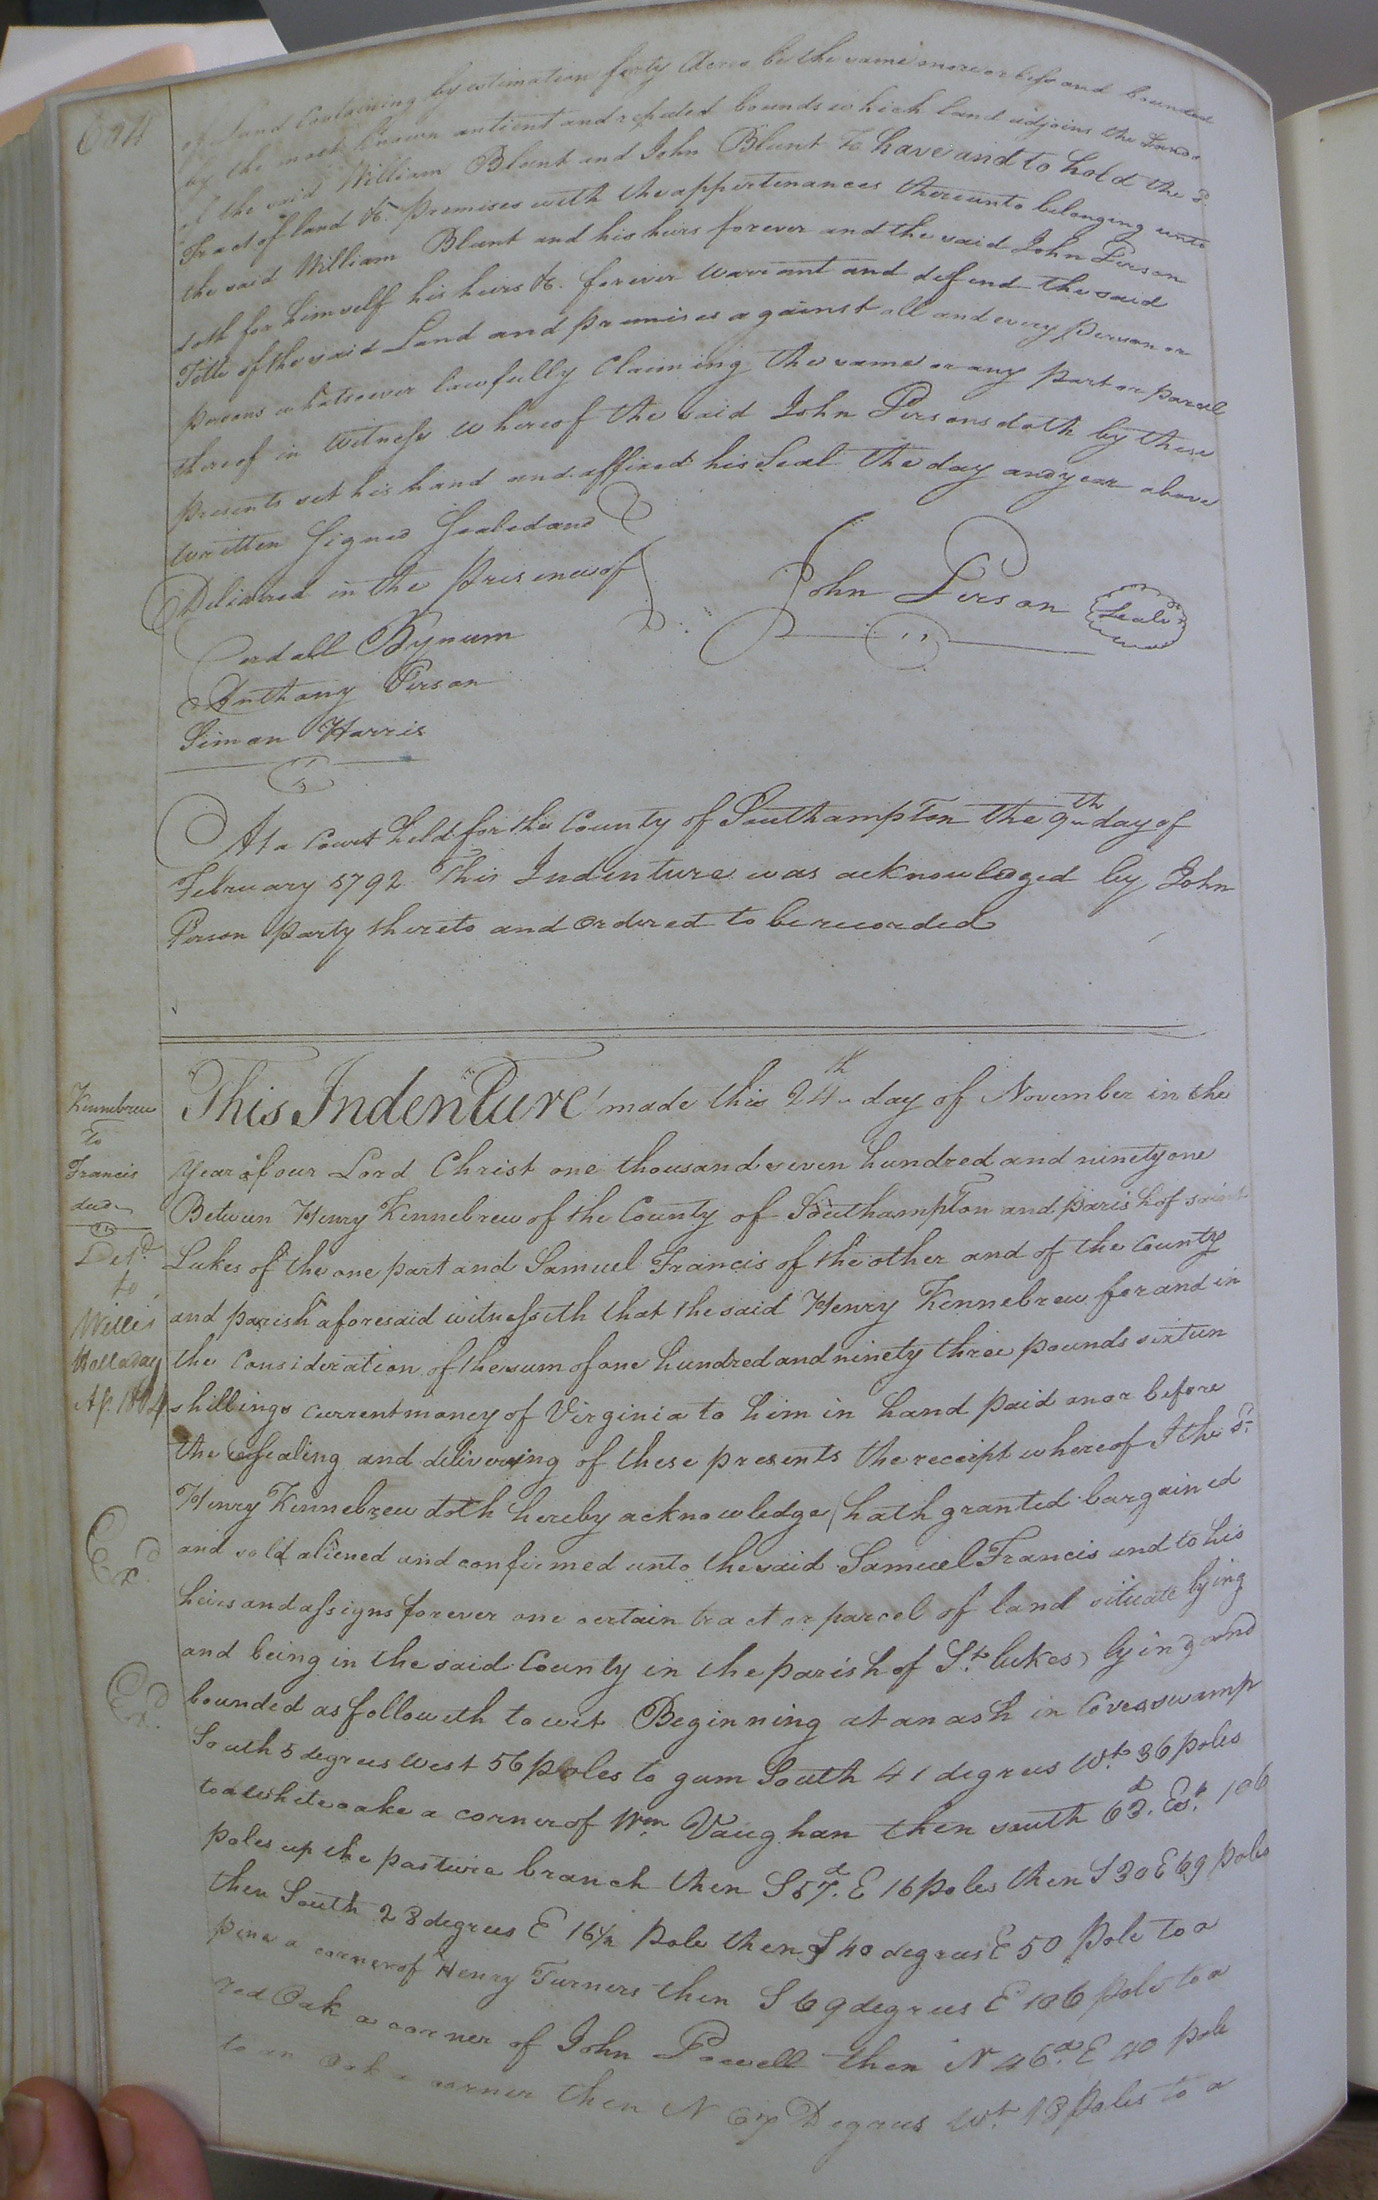 of Land Containing by estimation forty Acres be the same more or less and bounded
by the most known antient and reputed bounds which land adjoins the Lands
of the said William Blunt and John Blunt To have and to hold the sd
Tract of land &c. Premises with the appertenances thereunto belonging unto
the said William Blunt and his heirs forever and the said John Person
doth for himself his heirs &c. forever warrant and defend the said
Title of the said Land and premises against all and every person or
persons whatsoever lawfully Claiming the same or any part or parcel
thereof in witness whereof the said John Persons doth by these
presents set his hand and affixed his Seal the day and year above
written Signed Sealed and
Delivered in the presence of
John Person Seal
Cordall Bynum
Anthony Person
Simon Harris
At a Court held for the County of Southampton the 9th day of
February 1792 This Indenture was acknowledged by John
Person party thereto and ordered to be recorded
Kennebrew
to
Francis
deed
Deld
to
Willis
Holladay
Ap. 1804
Exd.
Exd.
This Indenture made this 24th day of November in the
Year of our Lord Christ one thousand seven hundred and ninety one
Between Henry Kennebrew of the County of Southampton and parish of saint
Lukes of the one part and Samuel Francis of the other and of the County
and parish aforesaid witnesseth that the said Henry Kennebrew for and in
the Consideration of the sum of one hundred and ninety three pounds sixteen
shillings current money of Virginia to him in hand paid on or before
the Sealing and delivering of these presents the receipt whereof I the sd.
Henry Kennebrew doth hereby acknowledge hath granted bargained
and sold aliened and confirmed unto the said Samuel Francis and to his
heirs and assigns forever one certain tract or parcel of land situate lying
and being in the said County in the parish of St. lukes, lying and
bounded as followeth to wit Beginning at an ash in Coves swamp
South 5 degrees West 56 poles to gum South 41 degrees Wt. 36 poles
to a white oake a corner of Wm. Vaughan then south 63.d Est. 106
poles up the pasture branch then S 57.d E 16 poles then S 30 E 69 poles
then South 28 degrees E 16 1/2 Pole then S 40 degrees E 50 pole to a
pine a corner of Henry Turners then S 69 degrees E 106 pole to a
red Oak a corner of John Powell then N 46.do E 40 pole
to an Oak a corner then N 67 Degrees Wt. 18 poles to a